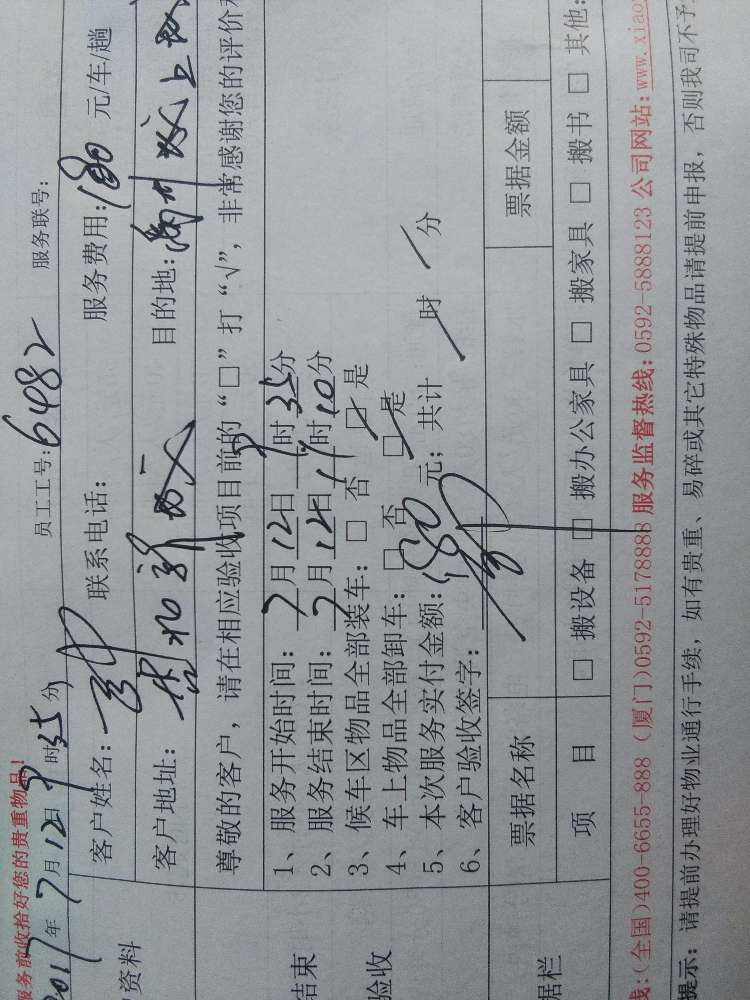 服务前收拾好您的贵重物品!
2017年7月12日9时35分 员工工号:6482 服务联号:
客户姓名: 联系电话: 服务费用:180 元/车/趟
客户地址: 目的地:
尊敬的客户，请在相应验收项目前的“□”打“√”，非常感谢您的评价
1、服务开始时间:7月12日9时35分
2、服务结束时间:7月12日11时10分
3、候车区物品全部装车:□否 □是
4、车上物品全部卸车:□否 □是
5、本次服务实付金额:180元; 共计 时 分
6、客户验收签字:
票据名称 票据金额
项 目 □ 搬设备 □ 搬办公家具 □ 搬家具 □ 搬书 □ 其他:
线:(全国)400-6655-888 (厦门)0592-5178888 服务监督热线:0592-5888123 公司网站:www.xiao
提示:请提前办理好物业通行手续，如有贵重、易碎或其它特殊物品请提前申报，否则我司不予
资料
结束
验收
据栏